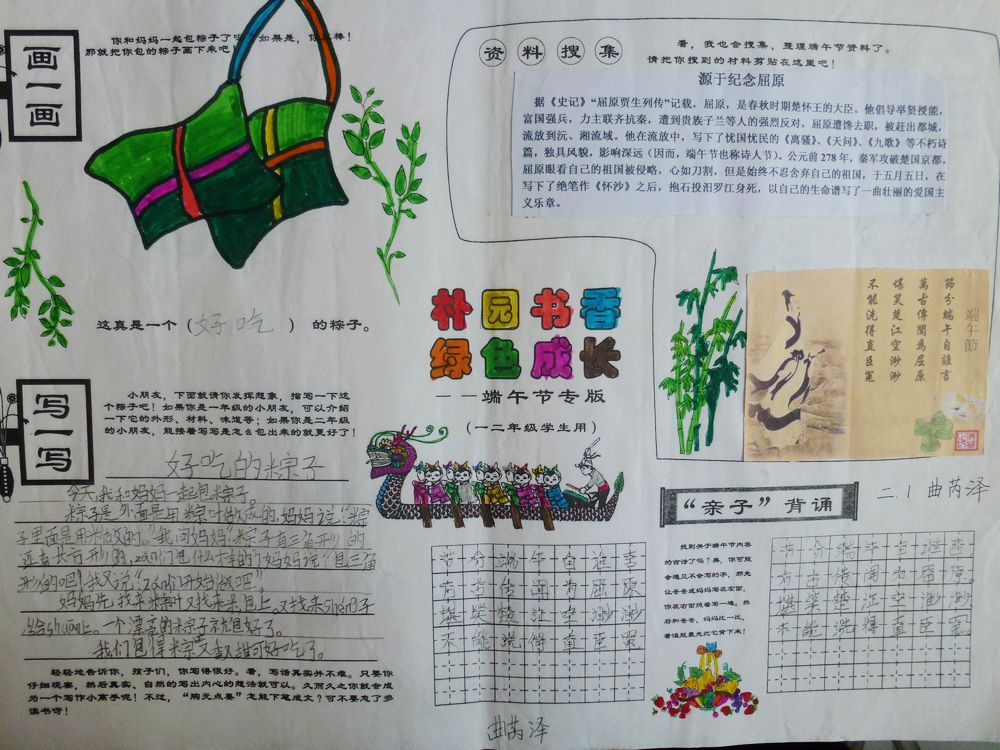 画一画
你和妈妈一起包粽子了吗？如果是，你真棒！
那就把你包的粽子画下来吧！
这真是一个（好吃）的粽子。
写一写
小朋友，下面就请你发挥想象，描写一下这
个粽子吧！如果你是一年级的小朋友，可以介绍
一下它的外形、材料、味道等；如果你是二年级
的小朋友，能接着写写是怎么包出来的就更好了！
好吃的粽子
今天，我和妈妈一起包粽子。
粽子是外面是用粽叶做成的，妈妈说：“粽
子里面是用米做的。”我问妈妈：“粽子有三角形的
还有长方形的，zán们包什么样的？”妈妈说：“包三角
形的吧！”我又说：“zán们开始做吧”
妈妈先找来米粽叶又找来米包上。又找来shéng子
给shuān上。一个漂亮的粽子就包好了。
我们包得粽又甜可好吃了。
轻轻地告诉你，孩子们，你写得很好。看，写话其实并不难。只要你
仔细观察，然后真实、自然的写出内心的想法就可以。久而久之你就会成
为一个写作小高手呢！不过，“胸无点墨”怎能下笔成文？可不要忘了多
读书呀！
资料搜集
看，我也会搜集、整理端午节资料了。
请把你搜到的材料剪贴在这里吧！
源于纪念屈原
据《史记》“屈原贾生列传”记载，屈原，是春秋时期楚怀王的大臣。他倡导举贤授能，
富国强兵，力主联齐抗秦，遭到贵族子兰等人的强烈反对，屈原遭馋去职，被赶出都城，
流放到沅、湘流域。他在流放中，写下了忧国忧民的《离骚》、《天问》、《九歌》等不朽诗
篇，独具风貌，影响深远（因而，端午节也称诗人节）。公元前278年，秦军攻破楚国京都。
屈原眼看自己的祖国被侵略，心如刀割，但是始终不忍舍弃自己的祖国，于五月五日，在
写下了绝笔作《怀沙》之后，抱石投汨罗江身死，以自己的生命谱写了一曲壮丽的爱国主
义乐章。
朴园书香
绿色成长
——端午节专版
（一二年级学生用）
端午節
節分端午自誰言
萬古傳聞為屈原
堪笑楚江空渺渺
不能洗得直臣冤
“亲子”背诵
二.1 曲芮泽
找到关于端午节内容
的古诗了吗？爽，你可能
会遇见不会写的字，那先
让爸爸或妈妈写在左面，
你在右面照着写一遍。然
后和爸爸、妈妈比一比，
看谁能最先把它背下来！
节分端午自谁言
万古传闻为屈原
堪笑楚江空渺渺
不能洗得直臣冤
节分端午自谁言
万古传闻为屈原。
堪笑楚江空渺渺
不能洗得直臣冤
曲芮泽